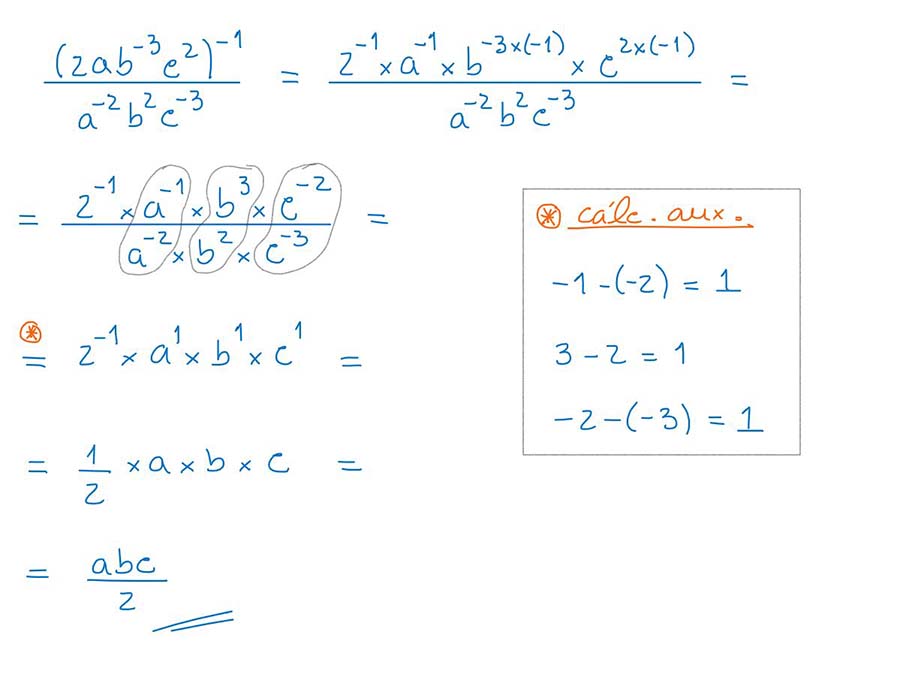 (2ab⁻³c²)⁻¹ / a⁻²b²c⁻³ = 2⁻¹ × a⁻¹ × b⁻³ˣ⁽⁻¹⁾ × c²ˣ⁽⁻¹⁾ / a⁻²b²c⁻³ =
= 2⁻¹ × a⁻¹ × b³ × c⁻² / a⁻² × b² × c⁻³ =
⊛
= 2⁻¹ × a¹ × b¹ × c¹ =
= 1/2 × a × b × c =
= abc/2
⊛ cálc. aux.
-1-(-2) = 1
3 - 2 = 1
-2-(-3) = 1